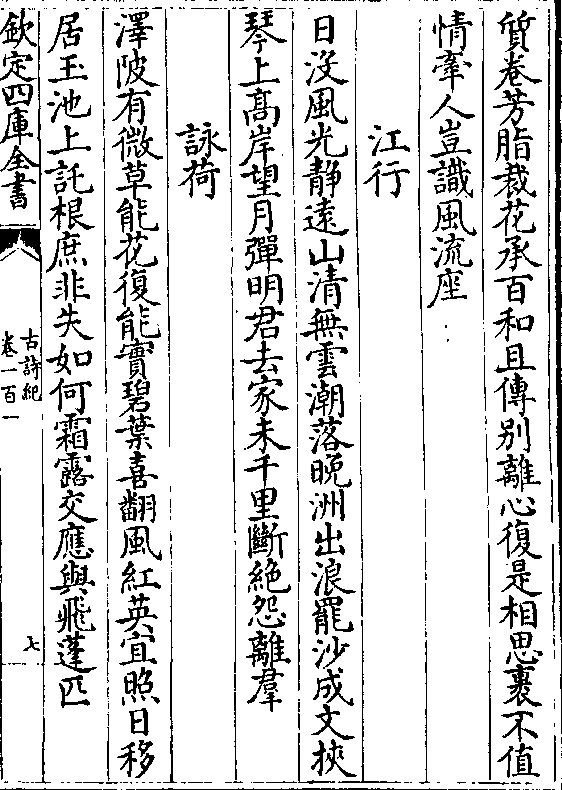 質卷芳脂裁花承百和且傳別離心復是相思裹不值
情牽人豈識風流座
江行
日没風光靜遠山清無雲潮落晚洲出浪罷沙成文挾
琴上高岸望月彈明君去家未千里斷絶怨離羣
詠荷
澤陂有微草能花復能實碧葉喜翻風紅英宜照日移
居玉池上託根庶非失如何霜露交應與飛蓬匹
欽定四庫全書
古詩紀
卷一百一
七